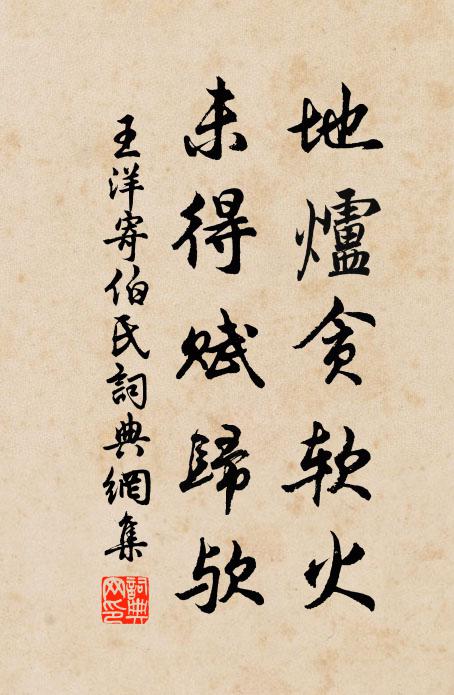 地爐貪软火
未得賦歸欤
王洋寄伯氏詞典網集
詞典网印